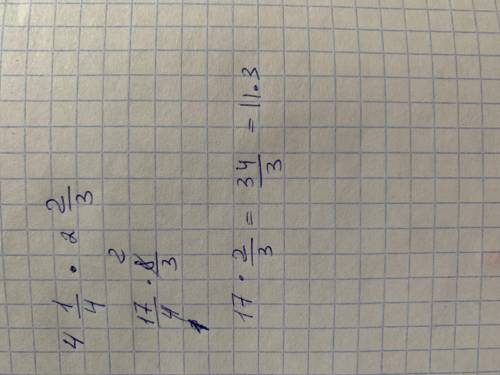 4 1/4 · 2 2/3
17/4 · 8/3 2 1
17 · 2/3 = 34/3 = 11.3